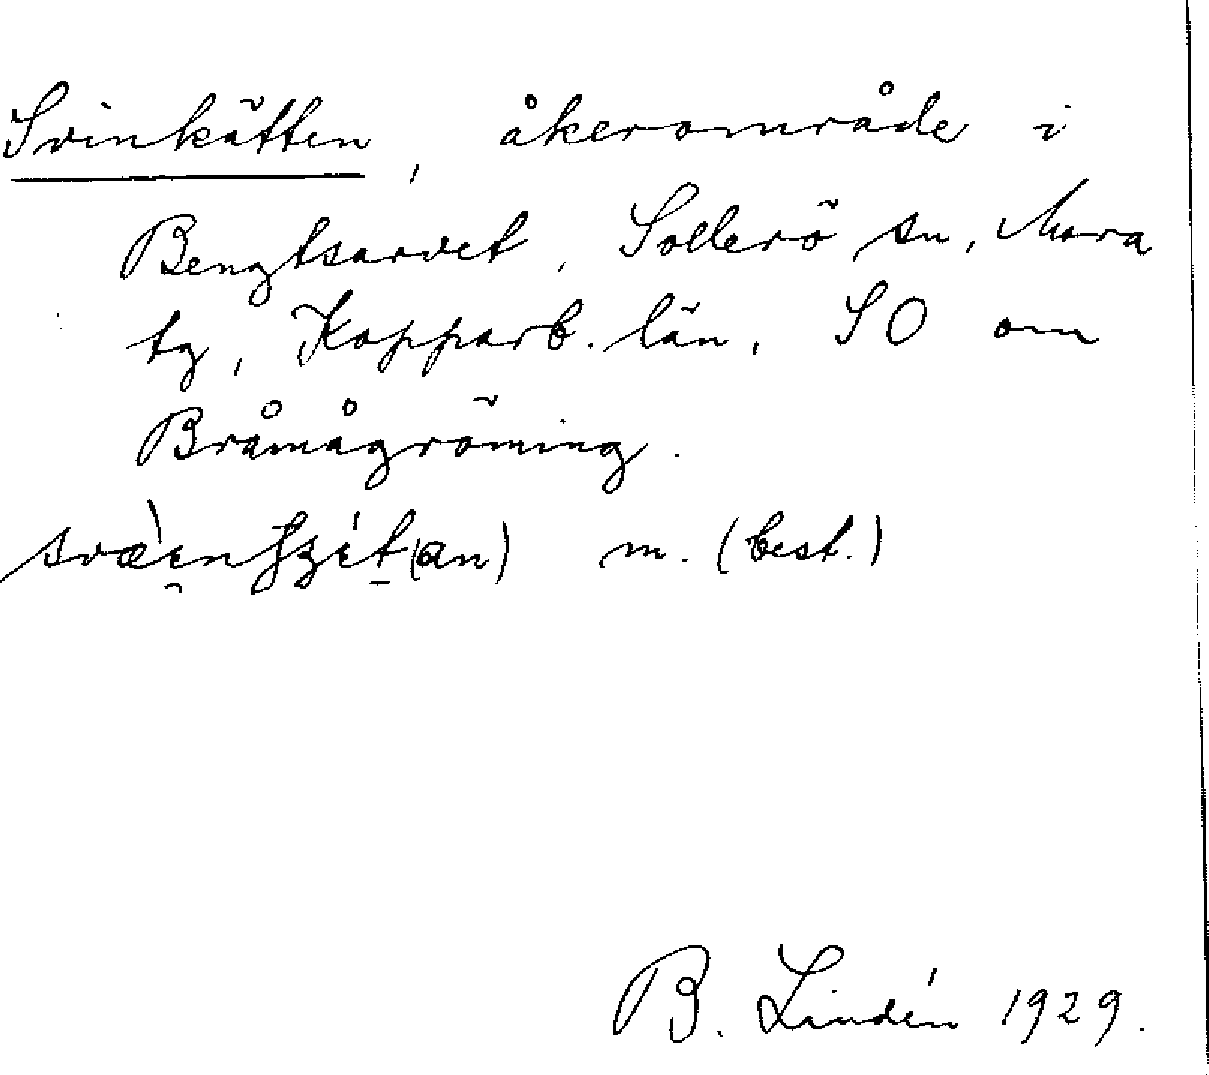 Svinkätten, åkerområde i
Bengtsarvet, Sollerö sn, Mora
tg, Kopparb. län, SO om
Bråmågröning.
m. (best.)
B. Lindén 1929.